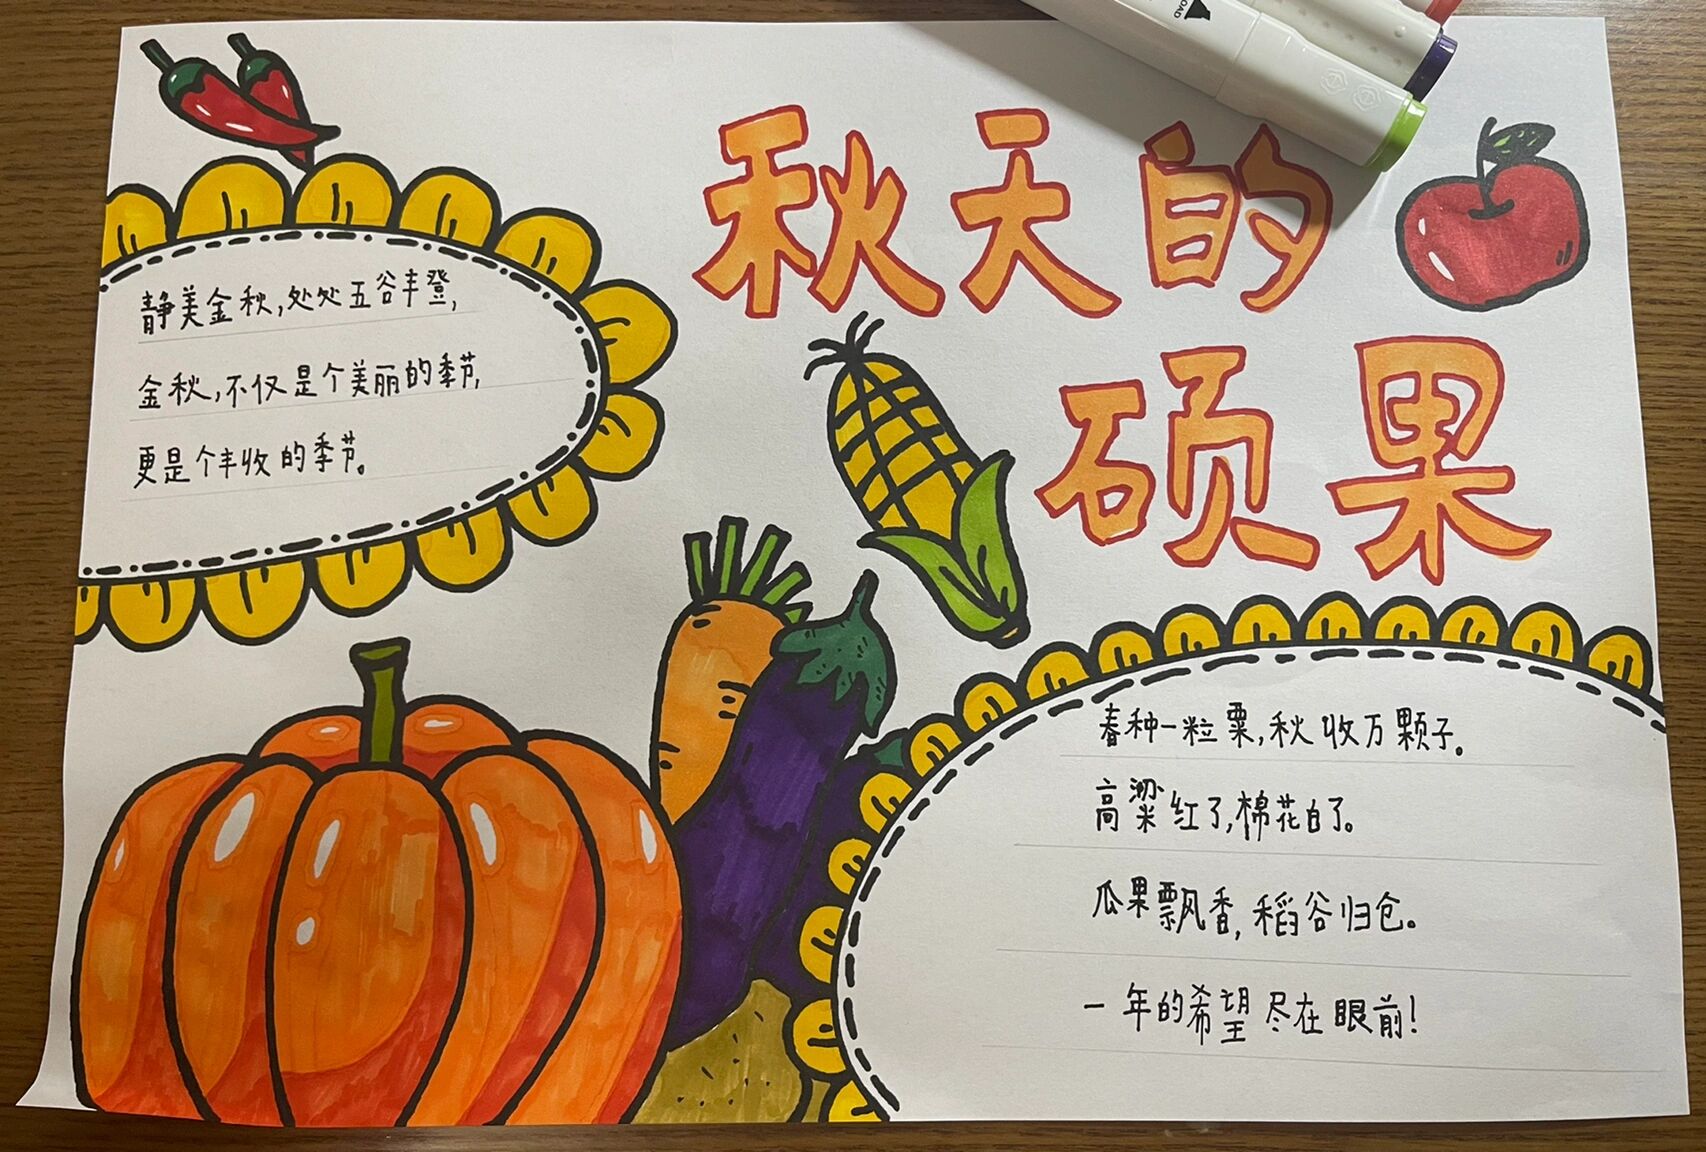 秋天的
硕果
静美金秋,处处五谷丰登,
金秋,不仅是个美丽的季节,
更是个丰收的季节。
春种一粒粟,秋收万颗子。
高粱红了,棉花白了。
瓜果飘香,稻谷归仓。
一年的希望尽在眼前!